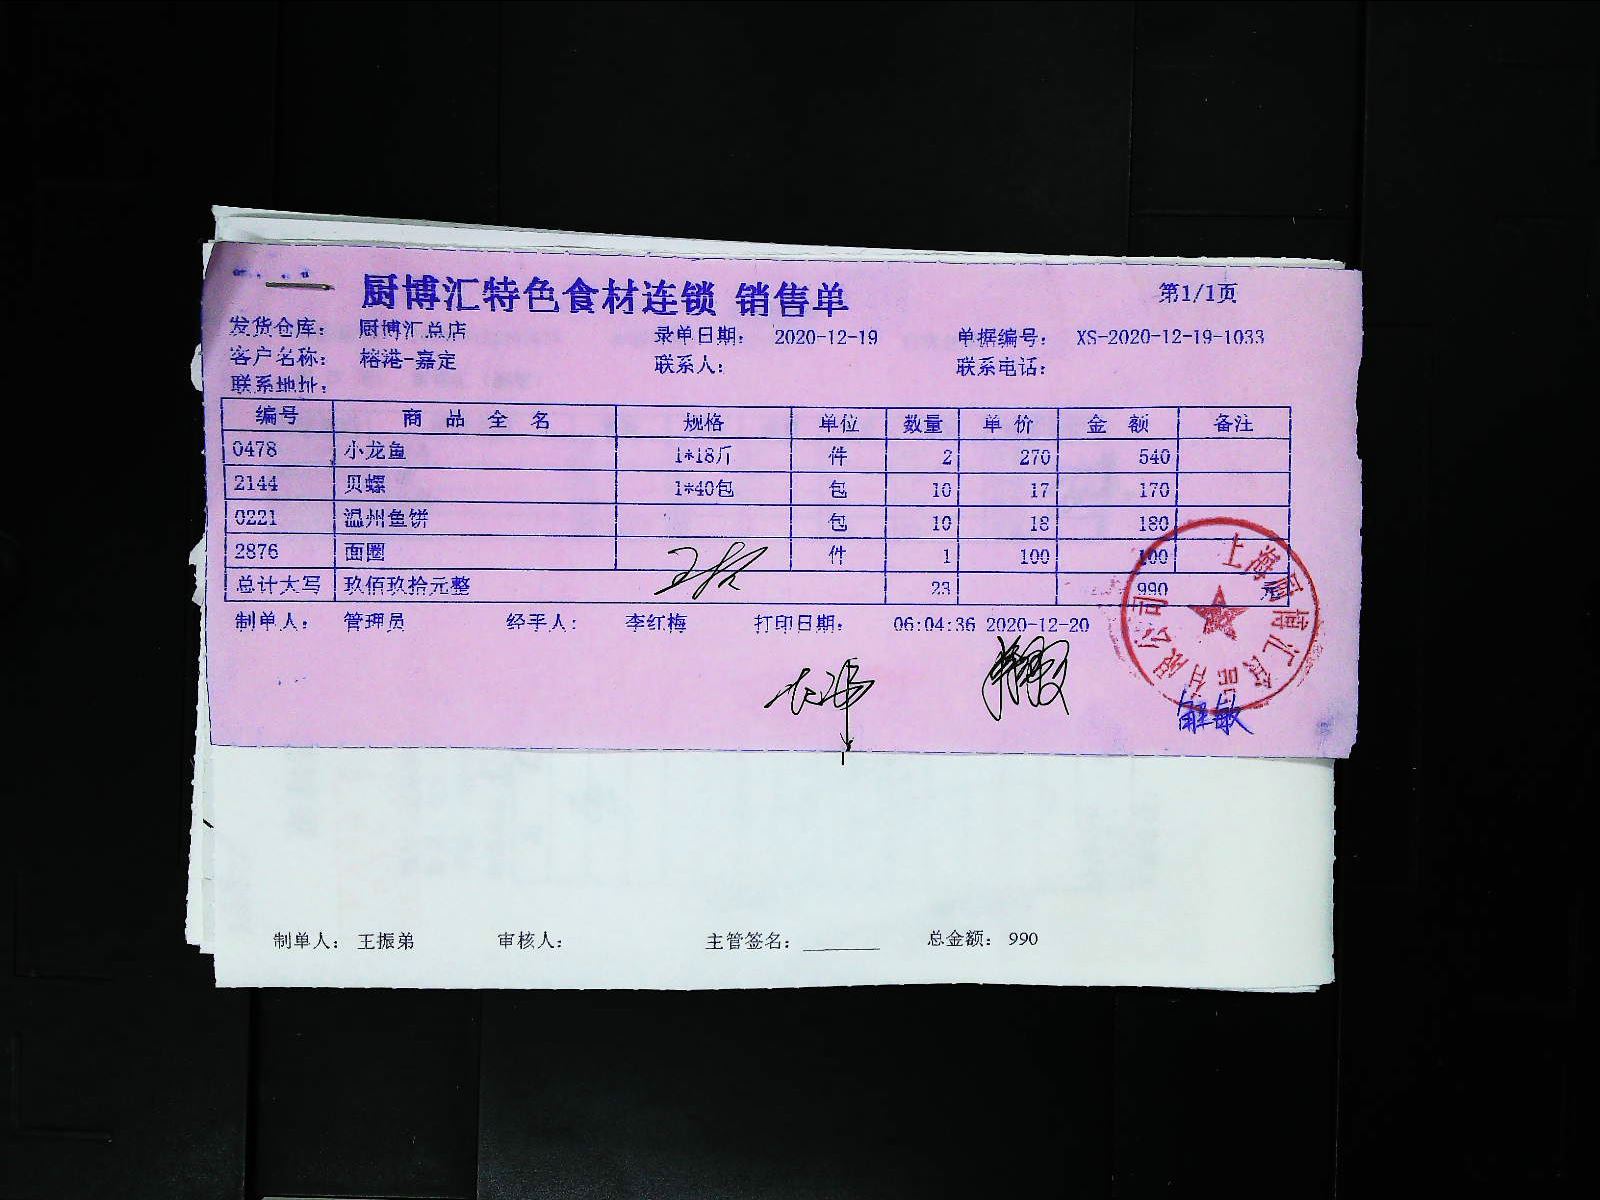 厨博汇特色食材连锁 销售单 第1/1页
发货仓库： 厨博汇总店 录单日期： 2020-12-19 单据编号： XS-2020-12-19-1033
客户名称： 榕港-嘉定 联系人： 联系电话：
联系地址：
编号 商品全名 规格 单位 数量 单价 金额 备注
0478 小龙鱼 1*18斤 件 2 270 540
2144 贝螺 1*40包 包 10 17 170
0221 温州鱼饼 包 10 18 180
2876 面圈 件 1 100 100
总计大写 玖佰玖拾元整 23 990 元
制单人： 管理员 经手人： 李红梅 打印日期： 06:04:36 2020-12-20
上海厨博汇食品有限公司
解敏
制单人： 王振弟 审核人： 主管签名： 总金额： 990